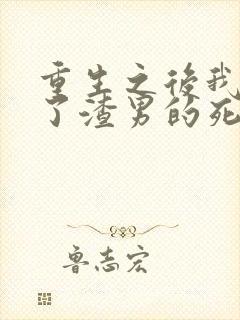 重生之后我
了渣男的死
鲁志宏